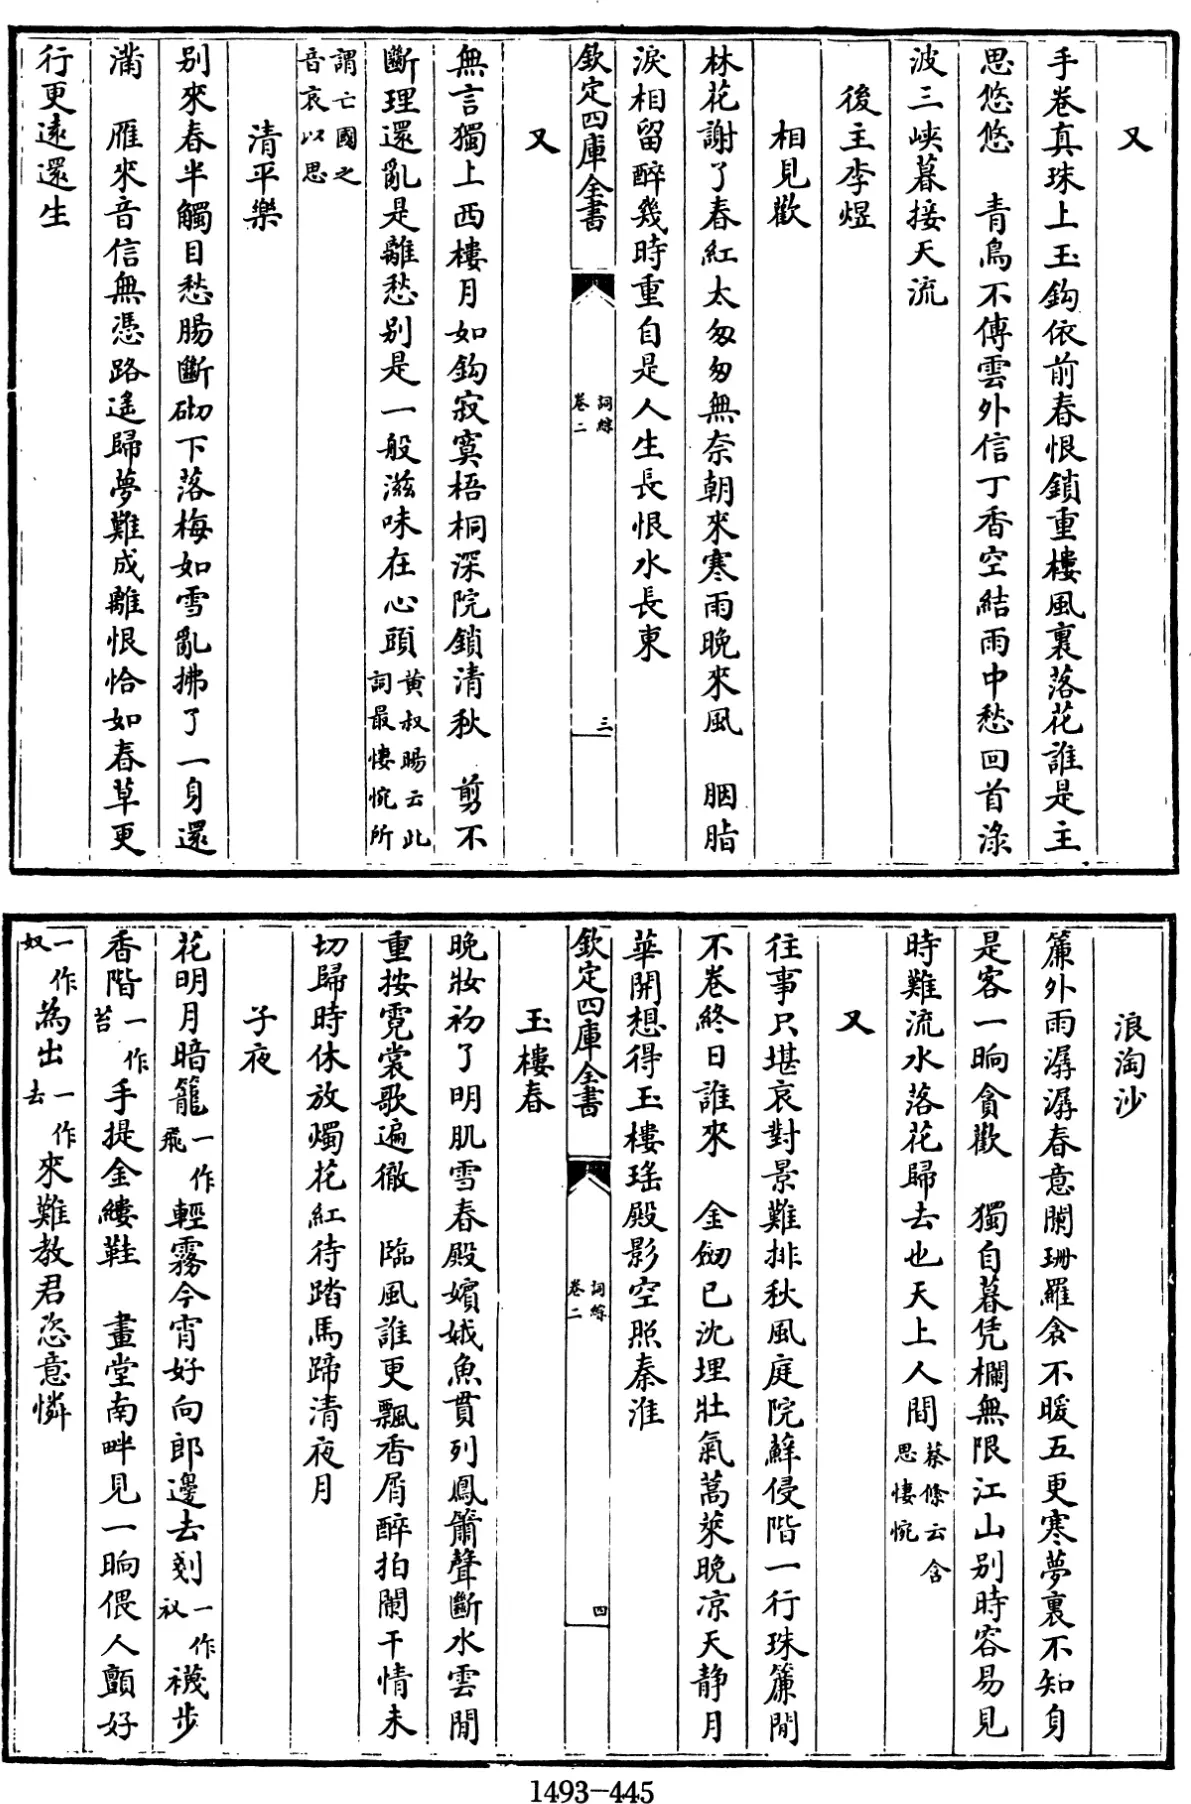 又
手卷真珠上玉鈎依前春恨鎖重樓風裏落花誰是主
思悠悠　青鳥不傳雲外信丁香空結雨中愁回首淥
波三峽暮接天流
後主李煜
相見歡
林花謝了春紅太匆匆無奈朝來寒雨晚來風　胭脂
淚相留醉幾時重自是人生長恨水長東
欽定四庫全書
詞綜
卷二
三
又
無言獨上西樓月如鈎寂寞梧桐深院鎖清秋　剪不
斷理還亂是離愁别是一般滋味在心頭黄叔暘云此詞最悽惋所
謂亡國之音哀以思
清平樂
别來春半觸目愁腸斷砌下落梅如雪亂拂了一身還
滿　雁來音信無憑路遙歸夢難成離恨恰如春草更
行更遠還生
浪淘沙
簾外雨潺潺春意闌珊羅衾不暖五更寒夢裏不知身
是客一晌貪歡　獨自暮凭欄無限江山别時容易見
時難流水落花歸去也天上人間蔡絛云含思悽惋
又
往事只堪哀對景難排秋風庭院蘚侵階一行珠簾閒
不卷終日誰來　金劒已沈埋壯氣蒿萊晚凉天静月
華開想得玉樓瑤殿影空照秦淮
欽定四庫全書
詞綜
卷二
四
玉樓春
晚妝初了明肌雪春殿嬪娥魚貫列鳳簫聲斷水雲閒
重按霓裳歌遍徹　臨風誰更飄香屑醉拍闌干情未
切歸時休放燭花紅待踏馬蹄清夜月
子夜
花明月暗籠一作飛輕霧今宵好向郎邊去剗一作衩襪步
香階一作苔手提金縷鞋　畫堂南畔見一晌偎人顫好
一作奴為出一作去來難教君恣意憐
1493-445